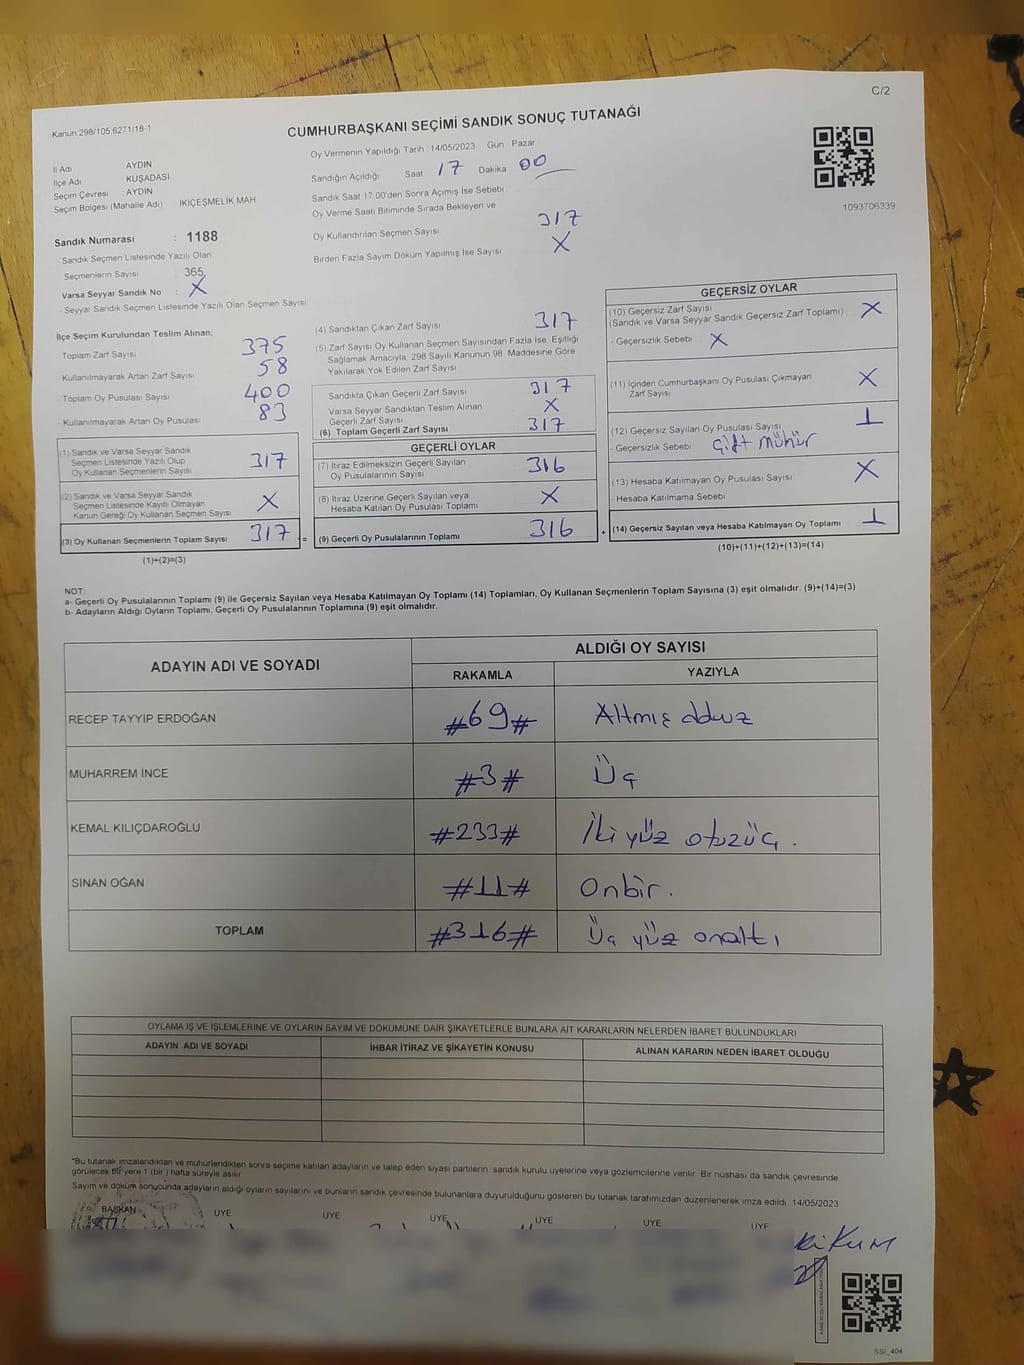 C/2
Kanun 298/105.6271/18-1
CUMHURBAŞKANI SEÇİMİ SANDIK SONUÇ TUTANAĞI
Oy Vermenin Yapıldığı Tarih 14/05/2023 Gün Pazar
İl Adı AYDIN
İlçe Adı KUŞADASI
Seçim Çevresi : AYDIN
Seçim Bölgesi (Mahalle Adı) İKİÇEŞMELİK MAH
Sandığın Açıldığı Saat 17 Dakika 00
Sandık Saat 17.00'den Sonra Açımış İse Sebebi
Oy Verme Saati Bitiminde Sırada Bekleyen ve
Oy Kullandırılan Seçmen Sayısı 317
Birden Fazla Sayım Döküm Yapılmış İse Sayısı X
1093706339
Sandık Numarası : 1188
- Sandık Seçmen Listesinde Yazılı Olan
Seçmenlerin Sayısı : 365
Varsa Seyyar Sandık No : X
- Seyyar Sandık Seçmen Listesinde Yazılı Olan Seçmen Sayısı
İlçe Seçim Kurulundan Teslim Alınan;
- Toplam Zarf Sayısı 375
- Kullanılmayarak Artan Zarf Sayısı 58
- Toplam Oy Pusulası Sayısı 400
- Kullanılmayarak Artan Oy Pusulası 83
(1) Sandık ve Varsa Seyyar Sandık
Seçmen Listesinde Yazılı Olup
Oy Kullanan Seçmenlerin Sayısı 317
(2) Sandık ve Varsa Seyyar Sandık
Seçmen Listesinde Kayıtlı Olmayan
Kanun Gereği Oy Kullanan Seçmen Sayısı X
(3) Oy Kullanan Seçmenlerin Toplam Sayısı 317 =
(1)+(2)=(3)
(4) Sandıktan Çıkan Zarf Sayısı 317
(5) Zarf Sayısı Oy Kullanan Seçmen Sayısından Fazla İse, Eşitliği
Sağlamak Amacıyla, 298 Sayılı Kanunun 98. Maddesine Göre
Yakılarak Yok Edilen Zarf Sayısı
Sandıkta Çıkan Geçerli Zarf Sayısı 317
Varsa Seyyar Sandıktan Teslim Alınan
Geçerli Zarf Sayısı X
(6) Toplam Geçerli Zarf Sayısı 317
GEÇERLİ OYLAR
(7) İtiraz Edilmeksizin Geçerli Sayılan
Oy Pusulalarının Sayısı 316
(8) İtiraz Üzerine Geçerli Sayılan veya
Hesaba Katılan Oy Pusulası Toplamı X
(9) Geçerli Oy Pusulalarının Toplamı 316 +
GEÇERSİZ OYLAR
(10) Geçersiz Zarf Sayısı
(Sandık ve Varsa Seyyar Sandık Geçersiz Zarf Toplamı) X
- Geçersizlik Sebebi X
(11) İçinden Cumhurbaşkanı Oy Pusulası Çıkmayan
Zarf Sayısı X
(12) Geçersiz Sayılan Oy Pusulası Sayısı 1
- Geçersizlik Sebebi Çift mühür
(13) Hesaba Katılmayan Oy Pusulası Sayısı X
- Hesaba Katılmama Sebebi
(14) Geçersiz Sayılan veya Hesaba Katılmayan Oy Toplamı 1
(10)+(11)+(12)+(13)=(14)
NOT:
a- Geçerli Oy Pusulalarının Toplamı (9) ile Geçersiz Sayılan veya Hesaba Katılmayan Oy Toplamı (14) Toplamları, Oy Kullanan Seçmenlerin Toplam Sayısına (3) eşit olmalıdır. (9)+(14)=(3)
b- Adayların Aldığı Oyların Toplamı, Geçerli Oy Pusulalarının Toplamına (9) eşit olmalıdır.
ADAYIN ADI VE SOYADI
ALDIĞI OY SAYISI
RAKAMLA YAZIYLA
RECEP TAYYİP ERDOĞAN #69# Altmış dokuz
MUHARREM İNCE #3# Üç
KEMAL KILIÇDAROĞLU #233# İki yüz otuzüç.
SİNAN OĞAN #11# Onbir.
TOPLAM #316# Üç yüz onaltı
OYLAMA İŞ VE İŞLEMLERİNE VE OYLARIN SAYIM VE DÖKÜMÜNE DAİR ŞİKAYETLERLE BUNLARA AİT KARARLARIN NELERDEN İBARET BULUNDUKLARI
ADAYIN ADI VE SOYADI İHBAR İTİRAZ VE ŞİKAYETİN KONUSU ALINAN KARARIN NEDEN İBARET OLDUĞU
*Bu tutanak imzalandıktan ve mühürlendikten sonra seçime katılan adayların ve talep eden siyasi partilerin sandık kurulu üyelerine veya gözlemcilerine verilir. Bir nüshası da sandık çevresinde
görülecek bir yere 1 (bir) hafta süreyle asılır
Sayım ve döküm sonucunda adayların aldığı oyların sayılarını ve bunların sandık çevresinde bulunanlara duyurulduğunu gösteren bu tutanak tarafımızdan düzenlenerek imza edildi 14/05/2023
BAŞKAN ÜYE ÜYE ÜYE ÜYE ÜYE ÜYE
SSI_404